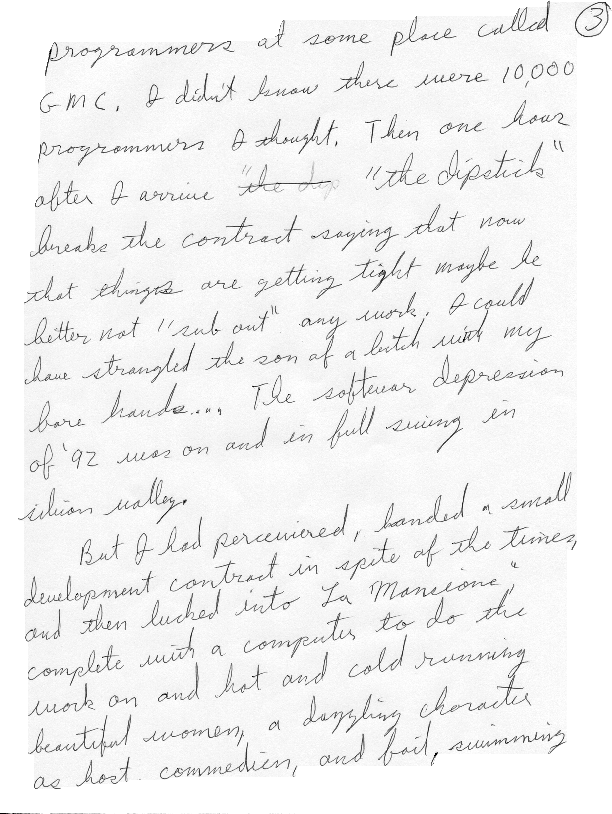 3
programmers at some place called
GMC. I didn't know there were 10,000
programmers I thought. Then one hour
after I arrive "the dip "the dipstick"
breaks the contract saying that now
that things are getting tight maybe he
better not "sub out" any work. I could
have strangled the son of a bitch with my
bare hands.... The softwear depression
of '92 was on and in full swing in
silicon valley.
But I had perceviered, landed a small
development contract in spite of the times,
and then lucked into "La Mansione",
complete with a computer to do the
work on and hot and cold running
beautiful women, a dazzling character
as host commedien, and foil, swimming